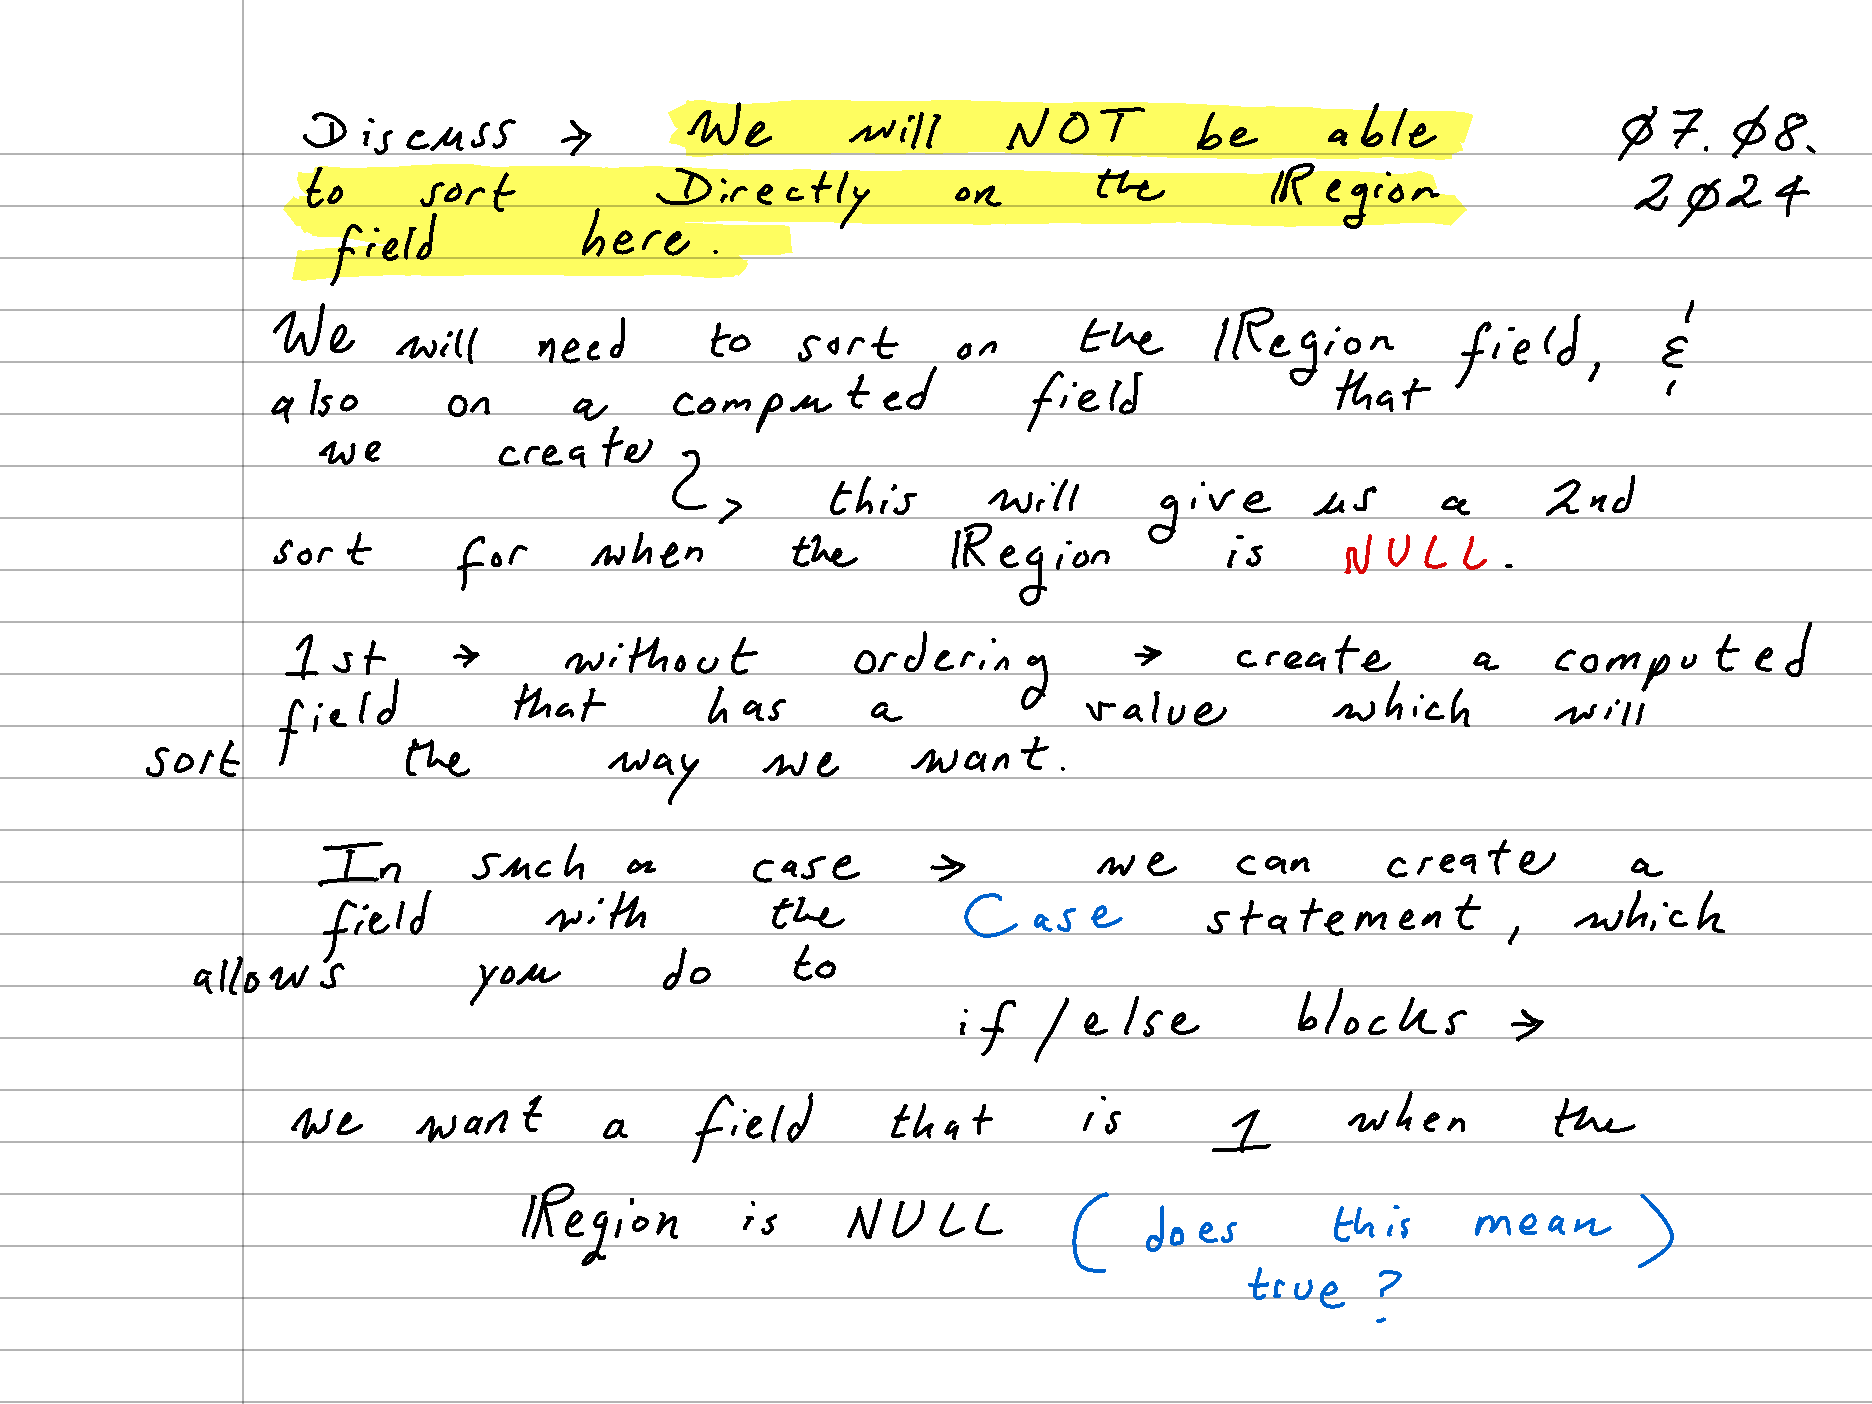 Discuss → We will NOT be able
Ø7.Ø8.
to sort Directly on the Region
2Ø24
field here.
We will need to sort on the Region field, &
also on a computed field that
we create
↳ this will give us a 2nd
sort for when the Region is NULL.
1st → without ordering → create a computed
field that has a value which will
sort the way we want.
In such a case → we can create a
field with the Case statement, which
allows you do to
if/else blocks →
we want a field that is 1 when the
Region is NULL (does this mean)
true?